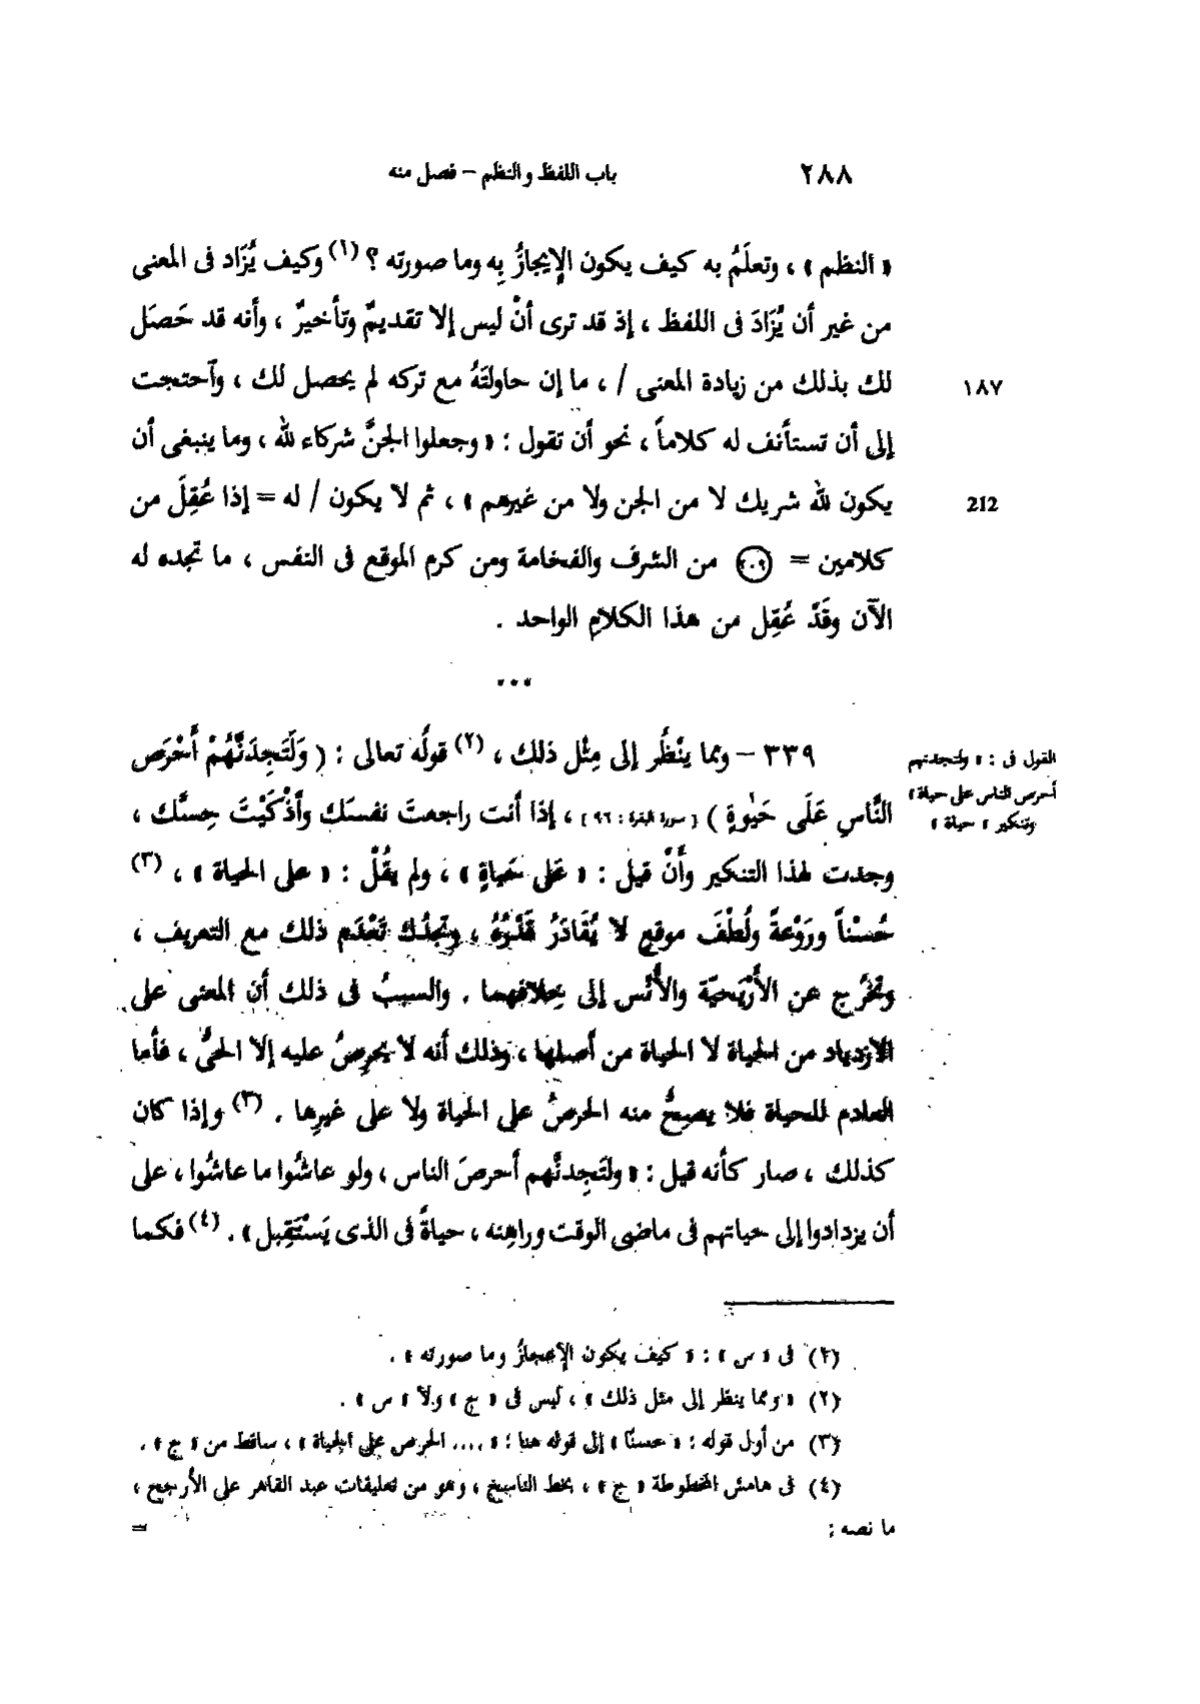 ٢٨٨ باب اللفظ والنظم – فصل منه
« النظم » ، وتعلَمُ به كيف يكون الإيجازُ بِه وما صورته ؟ (١) وكيف يُزَاد فى المعنى
من غير أن يُزَادَ فى اللفظ ، إذ قد ترى أنْ ليس إلا تقديمٌ وتأخيرٌ ، وأنه قد حَصَل
لك بذلك من زيادة المعنى / ، ما إن حاولتَهُ مع تركه لم يحصل لك ، وآحتجت
١٨٧
إلى أن تستأنف له كلاماً ، نحو أن تقول : « وجعلوا الجنَّ شركاء لله ، وما ينبغى أن
يكون لله شريك لا من الجن ولا من غيرهم » ، ثم لا يكون / له = إذا عُقِلَ من
212
كلامين = ٢٠٩ من الشرف والفخامة ومن كرم الموقع فى النفس ، ما تجده له
الآن وقَدْ عُقِل من هذا الكلامِ الواحد .
• • •
٣٣٩ – ومما ينْظُر إلى مِثْل ذلك ، (٢) قولُه تعالى : ( وَلَتَجِدَنَّهُمْ أَحْرَصَ
النَّاسِ عَلَى حَيٰوةٍ ) [ سورة البقرة : ٩٦ ] ، إذا أنت راجعتَ نفسَك وأَذْكَيْتَ حِسَّك ،
القول فى : « ولتجدنهم
أحرص الناس على حياة »
وتنكير « حياة »
وجدت لهذا التنكير وأَنْ قيل : « عَلى حَياةٍ » ، ولم يقُلْ : « على الحياة » ، (٣)
حُسْناً ورَوْعةً ولُطْفَ موقعٍ لا يُقَادَرُ قَدْرُهُ ، وتجدُك تَعْدَم ذلك مع التعريف ،
وتخرُج عن الأَرْيَحيّة والأُنْس إلى خِلافهما . والسببُ فى ذلك أن المعنى على
الازدياد من الحياة لا الحياة من أصلها ، وذلك أنه لا يحرِصُ عليه إلا الحىُّ ، فأما
العادم للحياة فلا يصِحُّ منه الحرصُ على الحياة ولا على غيرِها . (٣) وإذا كان
كذلك ، صار كأنه قيل : « ولتَجِدنَّهم أحرصَ الناس ، ولو عاشُوا ما عاشُوا ، على
أن يزدادوا إلى حياتهم فى ماضى الوقت وراهِنه ، حياةً فى الذى يَسْتَقِبل » . (٤) فكما
(١) فى « س » : « كيف يكون الإعجازُ وما صورته » .
(٢) « ومما ينظر إلى مثل ذلك » ، ليس فى « ج » ولا « س » .
(٣) من أول قوله : « حسنًا » إلى قوله هنا : « .... الحرص على الحياة » ، ساقط من « ج » .
(٤) فى هامش المخطوطة « ج » ، بخط الناسخ ، وهو من تعليقات عبد القاهر على الأرجح ،
ما نصه : =